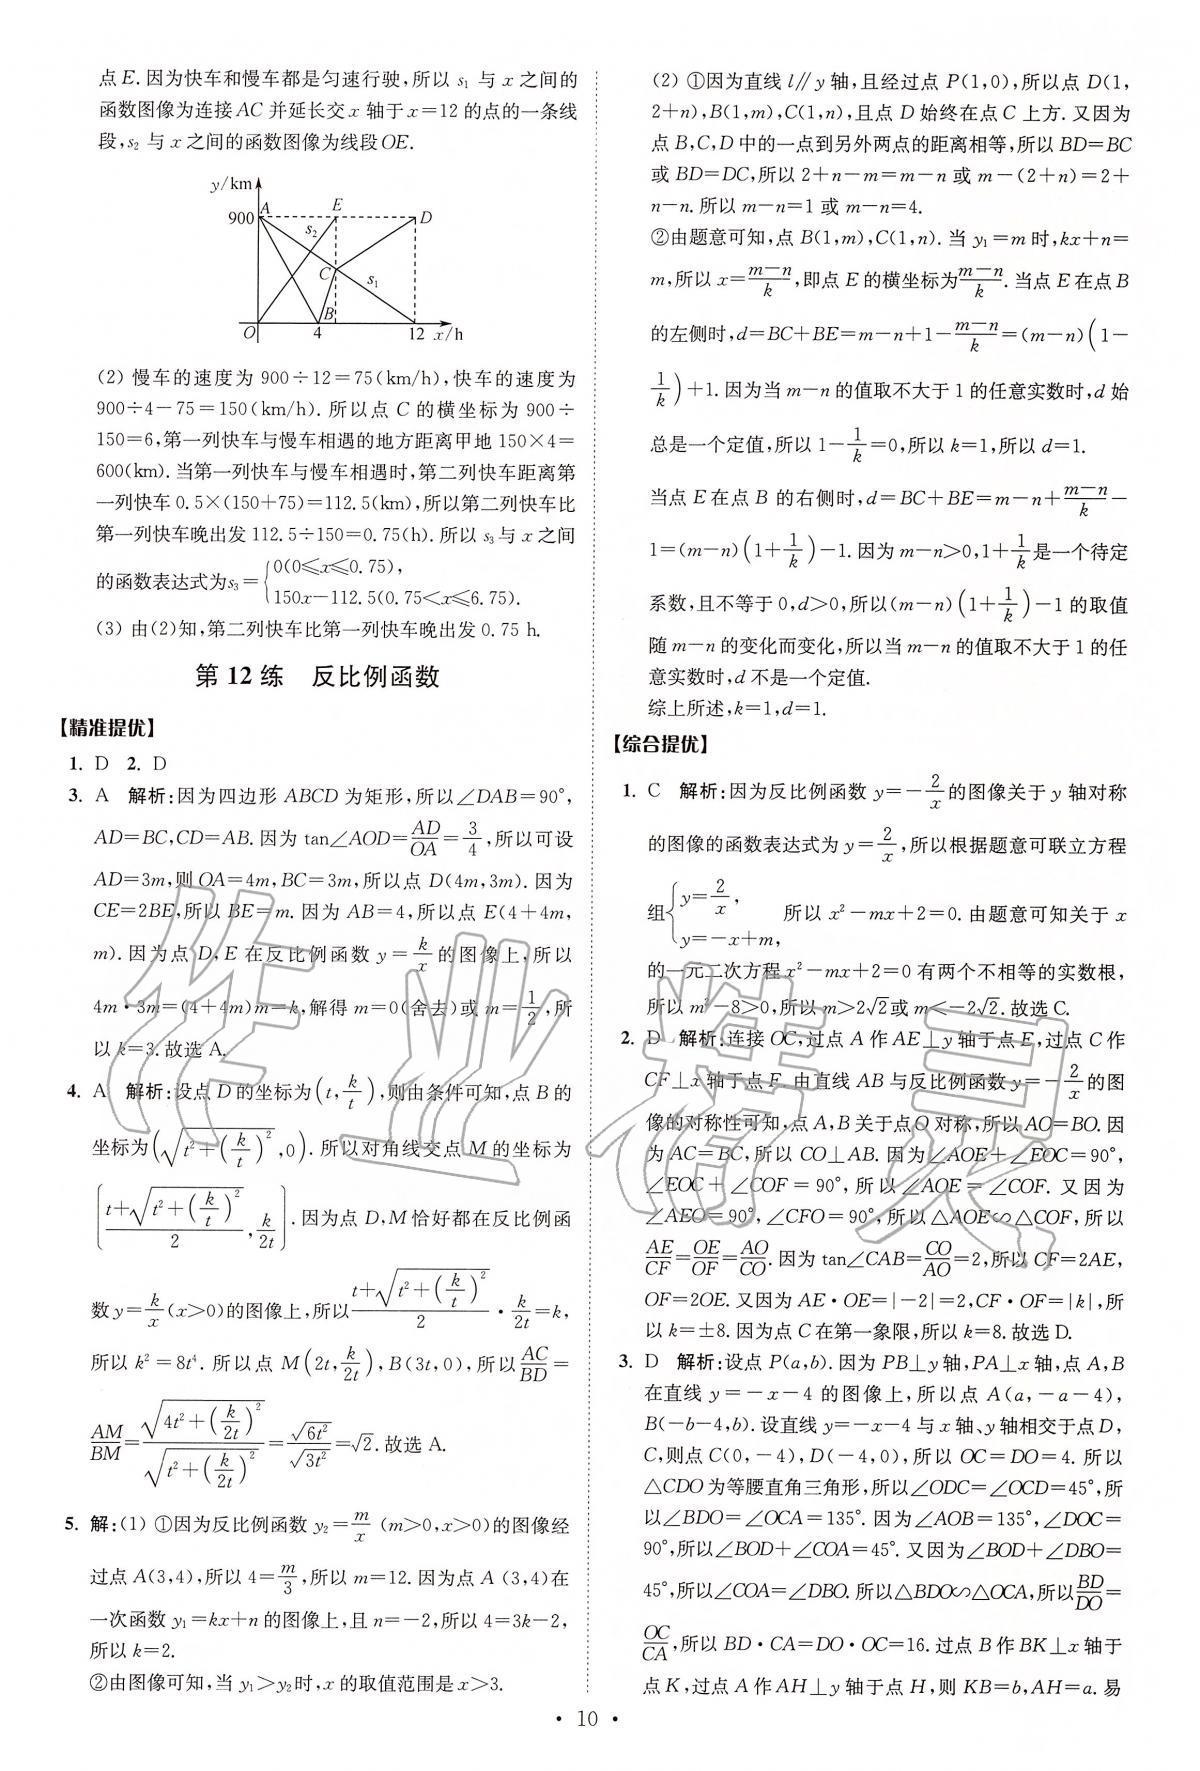 点 E. 因为快车和慢车都是匀速行驶,所以 s₁ 与 x 之间的
函数图像为连接 AC 并延长交 x 轴于 x=12 的点的一条线
段,s₂ 与 x 之间的函数图像为线段 OE.
y/km
900
A
E
D
s₂
C
s₁
B
O
4
12
x/h
(2) 慢车的速度为 900÷12=75(km/h),快车的速度为
900÷4-75=150(km/h). 所以点 C 的横坐标为 900÷
150=6,第一列快车与慢车相遇的地方距离甲地 150×4=
600(km). 当第一列快车与慢车相遇时,第二列快车距离第
一列快车 0.5×(150+75)=112.5(km),所以第二列快车比
第一列快车晚出发 112.5÷150=0.75(h). 所以 s₃ 与 x 之间
的函数表达式为 s₃={0(0≤x≤0.75),
150x-112.5(0.75<x≤6.75).
(3) 由(2)知,第二列快车比第一列快车晚出发 0.75 h.
第 12 练 反比例函数
【精准提优】
1. D 2. D
3. A 解析:因为四边形 ABCD 为矩形,所以∠DAB=90°,
AD=BC,CD=AB. 因为 tan∠AOD=AD/OA=3/4,所以可设
AD=3m,则 OA=4m,BC=3m,所以点 D(4m,3m). 因为
CE=2BE,所以 BE=m. 因为 AB=4,所以点 E(4+4m,
m). 因为点 D,E 在反比例函数 y=k/x 的图像上,所以
4m·3m=(4+4m)m=k,解得 m=0(舍去)或 m=1/2,所
以 k=3. 故选 A.
4. A 解析:设点 D 的坐标为(t,k/t),则由条件可知,点 B 的
坐标为(√(t²+(k/t)²),0). 所以对角线交点 M 的坐标为
[(t+√(t²+(k/t)²))/2,k/2t]. 因为点 D,M 恰好都在反比例函
数 y=k/x(x>0)的图像上,所以(t+√(t²+(k/t)²))/2·k/2t=k,
所以 k²=8t⁴. 所以点 M(2t,k/2t),B(3t,0),所以AC/BD=
AM/BM=√(4t²+(k/2t)²)/√(t²+(k/2t)²)=√6t²/√3t²=√2. 故选 A.
5. 解:(1) ①因为反比例函数 y₂=m/x (m>0,x>0)的图像经
过点 A(3,4),所以 4=m/3,所以 m=12. 因为点 A (3,4)在
一次函数 y₁=kx+n 的图像上,且 n=-2,所以 4=3k-2,
所以 k=2.
②由图像可知,当 y₁>y₂时,x 的取值范围是 x>3.
(2) ①因为直线 l∥y 轴,且经过点 P(1,0),所以点 D(1,
2+n),B(1,m),C(1,n),且点 D 始终在点 C 上方. 又因为
点 B,C,D 中的一点到另外两点的距离相等,所以 BD=BC
或 BD=DC,所以 2+n-m=m-n 或 m-(2+n)=2+
n-n. 所以 m-n=1 或 m-n=4.
②由题意可知,点 B(1,m),C(1,n). 当 y₁=m 时,kx+n=
m,所以 x=(m-n)/k,即点 E 的横坐标为(m-n)/k. 当点 E 在点 B
的左侧时,d=BC+BE=m-n+1-(m-n)/k=(m-n)(1-
1/k)+1. 因为当 m-n 的值取不大于 1 的任意实数时,d 始
总是一个定值,所以 1-1/k=0,所以 k=1,所以 d=1.
当点 E 在点 B 的右侧时,d=BC+BE=m-n+(m-n)/k-
1=(m-n)(1+1/k)-1. 因为 m-n>0,1+1/k是一个待定
系数,且不等于 0,d>0,所以(m-n)(1+1/k)-1 的取值
随 m-n 的变化而变化,所以当 m-n 的值取不大于 1 的任
意实数时,d 不是一个定值.
综上所述,k=1,d=1.
【综合提优】
1. C 解析:因为反比例函数 y=-2/x 的图像关于 y 轴对称
的图像的函数表达式为 y=2/x,所以根据题意可联立方程
组{y=2/x, y=-x+m, 所以 x²-mx+2=0. 由题意可知关于 x
的一元二次方程 x²-mx+2=0 有两个不相等的实数根,
所以 m²-8>0,所以 m>2√2或 m<-2√2. 故选 C.
2. D 解析:连接 OC,过点 A 作 AE⊥y 轴于点 E,过点 C 作
CF⊥x 轴于点 F. 由直线 AB 与反比例函数 y=-2/x 的图
像的对称性可知,点 A,B 关于点 O 对称,所以 AO=BO. 因
为 AC=BC,所以 CO⊥AB. 因为∠AOE+∠EOC=90°,
∠EOC+∠COF=90°,所以∠AOE=∠COF. 又因为
∠AEO=90°,∠CFO=90°,所以△AOE∽△COF,所以
AE/CF=OE/OF=AO/CO. 因为 tan∠CAB=CO/AO=2,所以 CF=2AE,
OF=2OE. 又因为 AE·OE=|-2|=2,CF·OF=|k|,所
以 k=±8. 因为点 C 在第一象限,所以 k=8. 故选 D.
3. D 解析:设点 P(a,b). 因为 PB⊥y 轴,PA⊥x 轴,点 A,B
在直线 y=-x-4 的图像上,所以点 A(a,-a-4),
B(-b-4,b). 设直线 y=-x-4 与 x 轴、y 轴相交于点 D,
C,则点 C(0,-4),D(-4,0),所以 OC=DO=4. 所以
△CDO 为等腰直角三角形,所以∠ODC=∠OCD=45°,所
以∠BDO=∠OCA=135°. 因为∠AOB=135°,∠DOC=
90°,所以∠BOD+∠COA=45°. 又因为∠BOD+∠DBO=
45°,所以∠COA=∠DBO. 所以△BDO∽△OCA,所以BD/DO=
OC/CA,所以 BD·CA=DO·OC=16. 过点 B 作 BK⊥x 轴于
点 K,过点 A 作 AH⊥y 轴于点 H,则 KB=b,AH=a. 易
· 10 ·
作业精灵